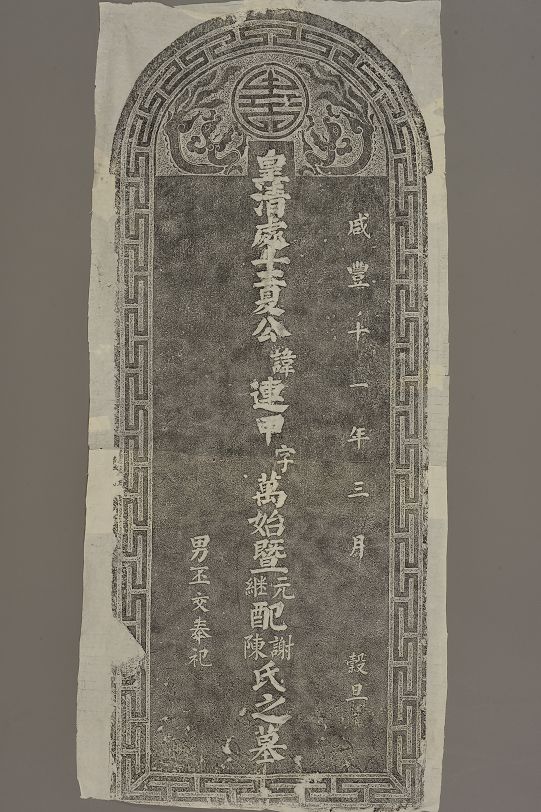 咸豐十一年三月 穀旦
皇清處士夏公諱連甲字萬始暨元継配謝陳氏之墓
男丕交奉祀